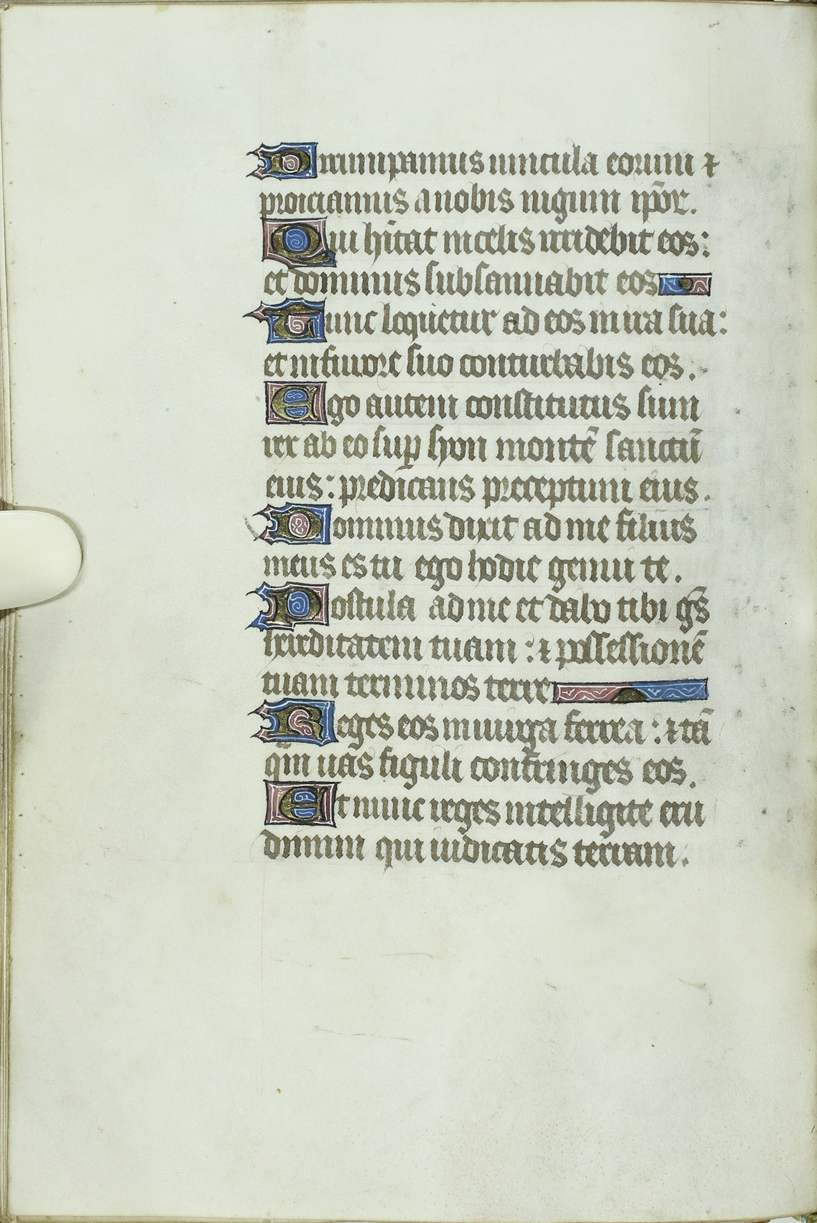 Dirumpamus uincula eorum ⁊
proiciamus a nobis iugum ip̄or.
Qui hītat in celis irridebit eos:
et dominus subsannabit eos
Tunc loquetur ad eos in ira sua:
et in furore suo conturbabis eos.
Ego autem constitutus sum
rex ab eo suꝑ syon montē sanctū
eius: predicans preceptum eius.
Dominus dixit ad me filius
meus es tu ego hodie genui te.
Postula a me et dabo tibi gēs
hereditatem tuam: ⁊ possessionē
tuam terminos terre
Reges eos in uirga ferrea: ⁊ tā
qm̄ uas figuli confringes eos.
Et nunc reges intelligite eru
dimini qui iudicatis terram.